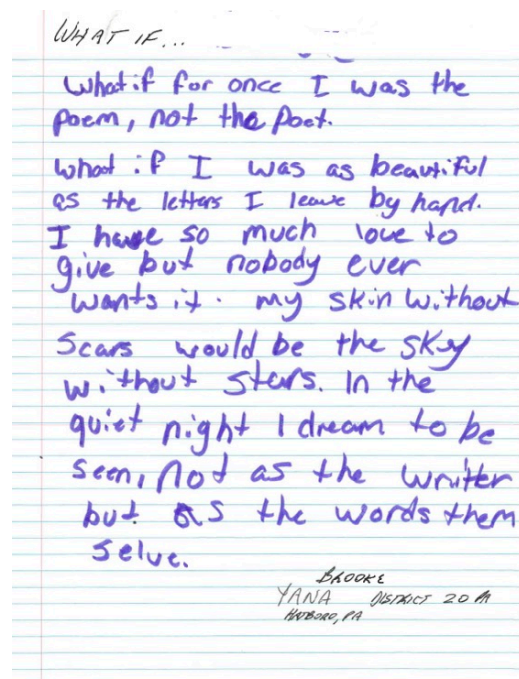 WHAT IF...
What if for once I was the
poem, not the Poet.
What if I was as beautiful
as the letters I leave by hand.
I have so much love to
give but nobody ever
wants it. my skin without
Scars would be the sky
without stars. In the
quiet night I dream to be
seen, not as the writer
but as the words them
selve.
BROOKE
YANA DISTRICT 20 PA
HATBORO, PA